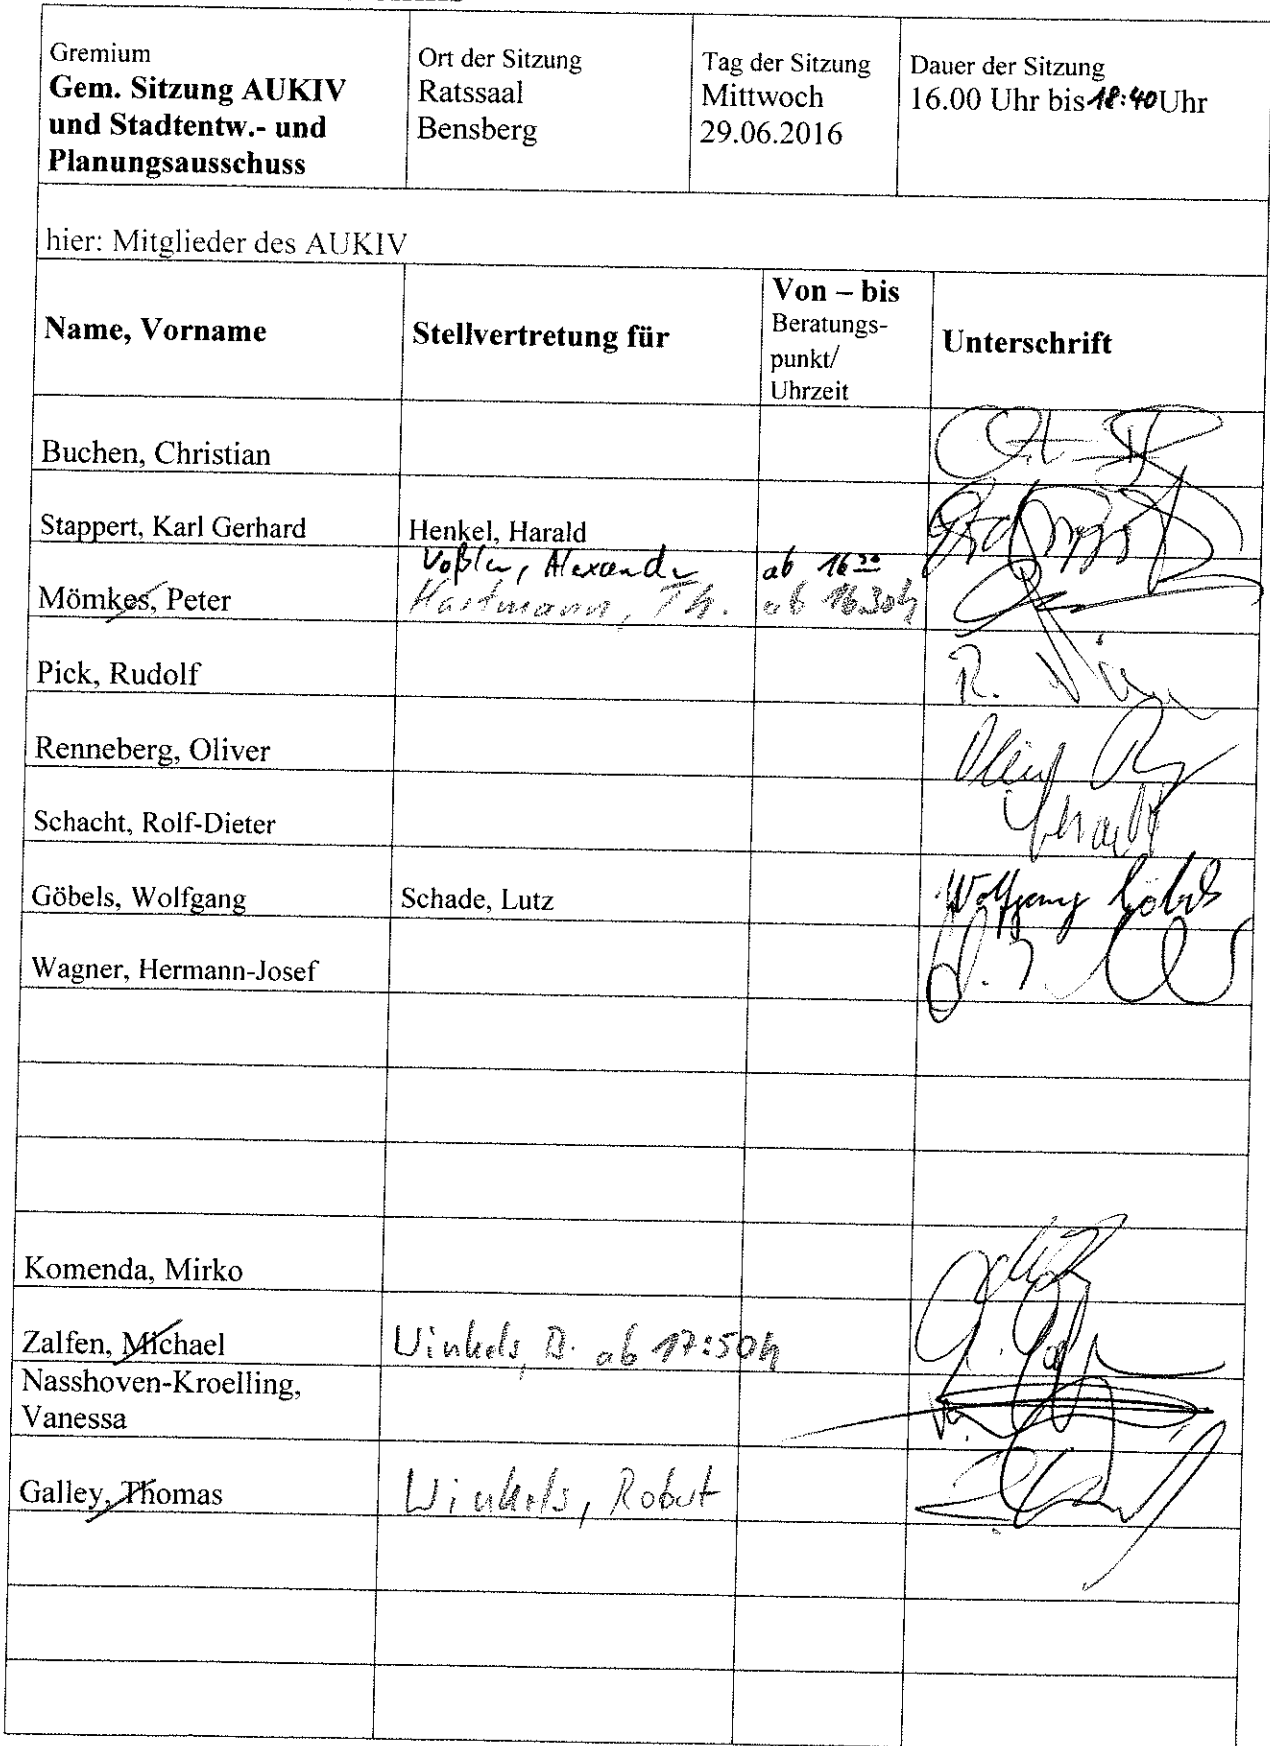 Gremium
Gem. Sitzung AUKIV
und Stadtentw.- und
Planungsausschuss
Ort der Sitzung
Ratssaal
Bensberg
Tag der Sitzung
Mittwoch
29.06.2016
Dauer der Sitzung
16.00 Uhr bis 18:40 Uhr
hier: Mitglieder des AUKIV
Name, Vorname
Stellvertretung für
Von – bis
Beratungs-
punkt/
Uhrzeit
Unterschrift
Buchen, Christian
Stappert, Karl Gerhard Henkel, Harald
Voßler, Alexander ab 16³⁰
Mömkes, Peter Hartmann, Th. ab 16.30h
Pick, Rudolf R. Pick
Renneberg, Oliver
Schacht, Rolf-Dieter Schacht
Göbels, Wolfgang Schade, Lutz Wolfgang Göbels
Wagner, Hermann-Josef
Komenda, Mirko
Zalfen, Michael Winkels, D. ab 17:50h
Nasshoven-Kroelling,
Vanessa
Galley, Thomas Winkels, Robert